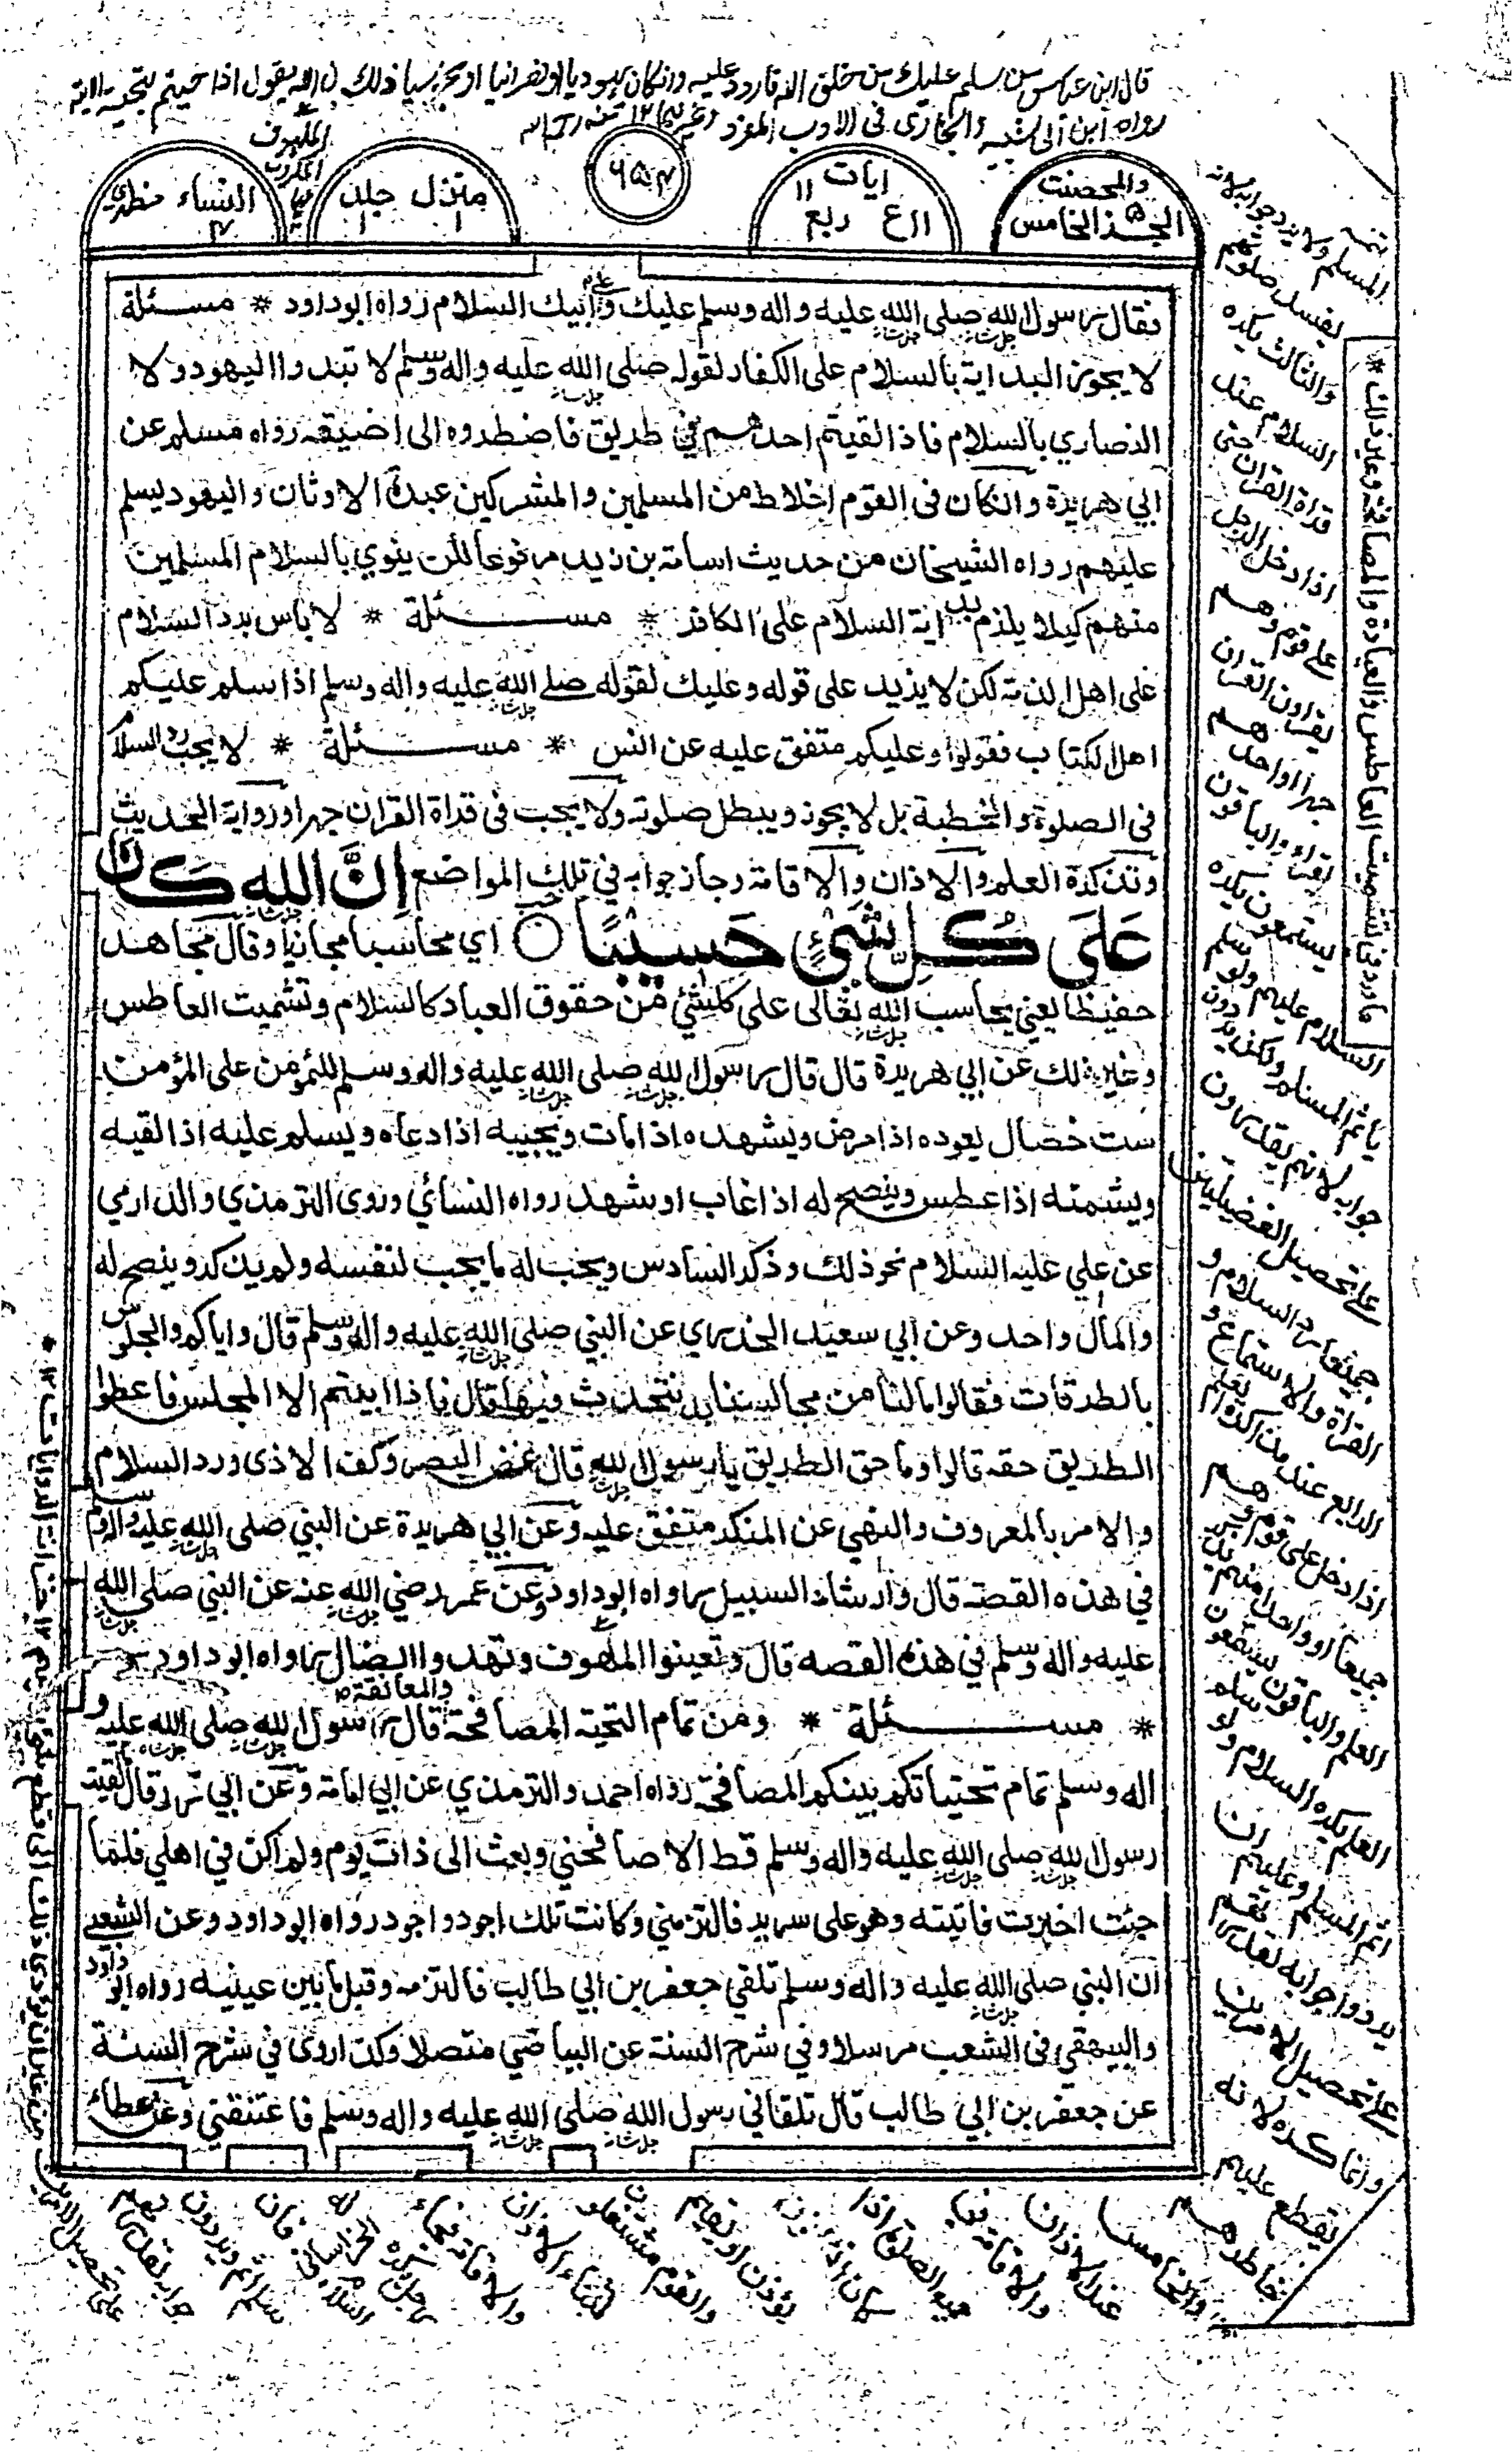 قال ابن عباس من سلم عليك من خلق الله فاردد عليه وان كان يهوديا او نصرانيا او مجوسيا ذلك بان الله يقول اذا حييتم بتحية الاية
رواه ابن ابى شيبه والبخارى فى الادب المفرد وغيرهما ١٢ منه رح
والمحصنت
الجزء الخامس
ايات ١١
١١ ع ربع
٦٥٣
منزل جلد
١ ١
الملهوف
المكروب
النساء مظهري
٤
فقال رسول الله صلى الله عليه واله وسلم عليك وعلى ابيك السلام رواه ابو داود * مسئلة
لا يجوز البداية بالسلام على الكفار لقوله صلى الله عليه واله وسلم لا تبدوا اليهود ولا
النصاري بالسلام فاذا لقيتم احدهم في طريق فاضطروه الى اضيقه رواه مسلم عن
ابي هريرة وان كان فى القوم اخلاط من المسلمين والمشركين عبدة الاوثان واليهود يسلم
عليهم رواه الشيخان من حديث اسامة بن زيد مرفوعا لكن ينوي بالسلام المسلمين
منهم كيلا يلزم بداية السلام على الكافر * مسئلة * لا باس برد السلام
على اهل الذمة لكن لا يزيد على قوله وعليك لقوله صلى الله عليه واله وسلم اذا سلم عليكم
اهل الكتاب فقولوا وعليكم متفق عليه عن انس * مسئلة * لا يجب رد السلام
فى الصلوة والخطبة بل لا يجوز ويبطل صلوته ولا يجب فى قراة القران جهرا ورواية الحديث
وتذكرة العلم والاذان والاقامة وجاز جوابه في تلك المواضع اِنَّ الله كَانَ
عَلَى كُلِّ شَيْءٍ حَسِيبًا ○ اي محاسبا مجازيا وقال مجاهد
حفيظا يعني يحاسب الله تعالى على كل شئ من حقوق العباد كالسلام وتشميت العاطس
وغير ذلك عن ابي هريرة قال قال رسول الله صلى الله عليه واله وسلم للمؤمن على المؤمن
ست خصال يعوده اذا مرض ويشهده اذا مات ويجيبه اذا دعاه ويسلم عليه اذا لقيه
ويشمته اذا عطس وينصح له اذا غاب او شهد رواه النسائي وروى الترمذي والدارمي
عن علي عليه السلام نحو ذلك وذكر السادس ويحب له ما يحب لنفسه ولم يذكر وينصح له
والمال واحد وعن ابي سعيد الخدري عن النبي صلى الله عليه واله وسلم قال واياكم والجلوس
بالطرقات فقالوا ما لنا من مجالسنا بد نتحدث فيها قال فاذا ابيتم الا المجلس فاعطوا
الطريق حقه قالوا وما حق الطريق يا رسول الله قال غض البصر وكف الاذى ورد السلام
والامر بالمعروف والنهي عن المنكر متفق عليه وعن ابي هريرة عن النبي صلى الله عليه واله وسلم
في هذه القصة قال وارشاد السبيل رواه ابو داود وعن عمر رضي الله عنه عن النبي صلى الله
عليه واله وسلم في هذه القصه قال وتعينوا الملهوف وتهدوا الضال رواه ابو داود
* مسئلة * ومن تمام التحية المصافحة والمعانقة قال رسول الله صلى الله عليه و
اله وسلم تمام تحياتكم بينكم المصافحة رواه احمد والترمذي عن ابي امامة وعن ابي ذر قال لقيت
رسول الله صلى الله عليه واله وسلم قط الا صافحني وبعث الى ذات يوم ولم اكن في اهلي فلما
جئت اخبرت فاتيته وهو على سرير فالتزمني وكانت تلك اجود واجود رواه ابو داود وعن الشعبي
ان النبي صلى الله عليه واله وسلم تلقي جعفر بن ابي طالب فالتزمه وقبل ما بين عينيه رواه ابو داود
والبيهقي فى الشعب مرسلا وفي شرح السنة عن البياضي متصلا وكذا روى في شرح السنة
عن جعفر بن ابي طالب قال تلقاني رسول الله صلى الله عليه واله وسلم فاعتنقني وعن عطاء
المسلم ولا يرد جوابه لانه
يفسد صلوتهم
والثالث يكره
السلام عند
قراة القران حتى
اذا دخل الرجل
على قوم وهم
يقراون القران
جهرا او احدهم
يقراء والباقون
يستمعون يكره
السلام عليهم ولو سلم
ياثم المسلم ولكن يردون
جوابه لانهم يقدرون
على تحصيل الفضيلتين
جميعا رد السلام و
القراة والاستماع و
الرابع عند مذاكرة العلم
اذا دخل على قوم وهم
جميعا او واحد منهم يذكر
العلم والباقون يستمعون
ايضا يكره السلام ولو سلم
اثم المسلم وعليهم ان
يردوا جوابه لقدرتهم
على تحصيل الامرين
وانما كره لانه
يقطع عليهم
خاطرهم
والخامس
عند الاذان
والاقامة
ما ورد فى تشميت العاطس والعيادة والمصافحة وغير ذلك *